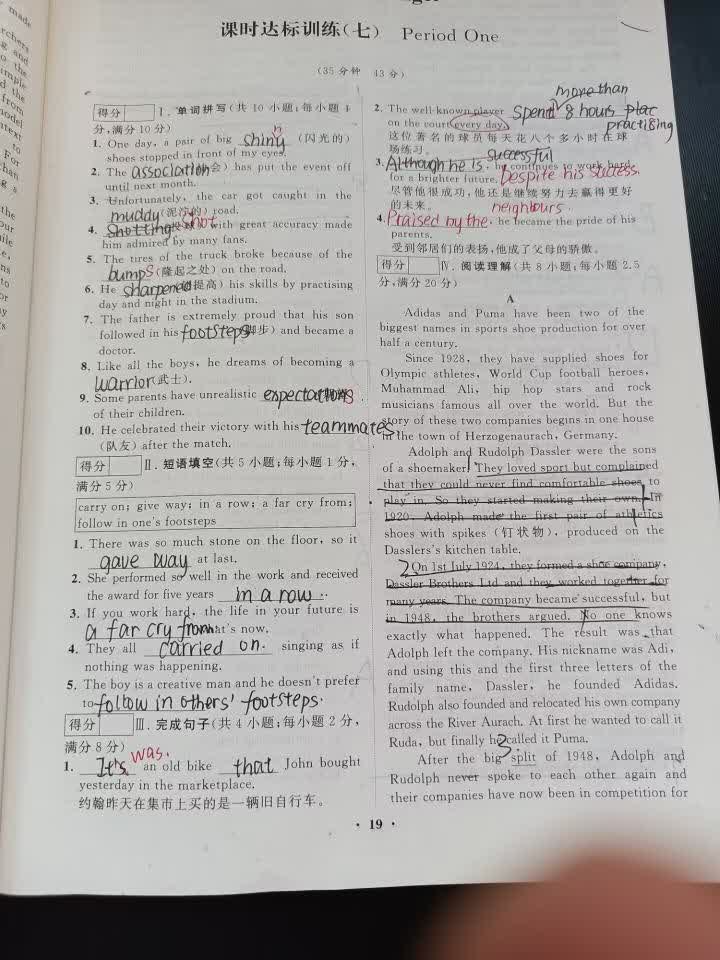 课时达标训练(七) Period One
(35分钟 43分)
得分 Ⅰ. 单词拼写(共10小题;每小题1
分,满分10分)
1. One day, a pair of big shiny (闪光的)
shoes stopped in front of my eyes.
2. The association 会) has put the event off
until next month.
3. Unfortunately, the car got caught in the
muddy (泥泞的) road.
4. Shotting Shot with great accuracy made
him admired by many fans.
5. The tires of the truck broke because of the
bumps (隆起之处) on the road.
6. He sharpened 提高) his skills by practising
day and night in the stadium.
7. The father is extremely proud that his son
followed in his footsteps 脚步) and became a
doctor.
8. Like all the boys, he dreams of becoming a
warrior (武士).
9. Some parents have unrealistic expectations
of their children.
10. He celebrated their victory with his teammates
(队友) after the match.
得分 Ⅱ. 短语填空(共5小题;每小题1分,
满分5分)
carry on; give way; in a row; a far cry from;
follow in one's footsteps
1. There was so much stone on the floor, so it
gave way at last.
2. She performed so well in the work and received
the award for five years in a row.
3. If you work hard, the life in your future is
a far cry from what's now.
4. They all carried on. singing as if
nothing was happening.
5. The boy is a creative man and he doesn't prefer
to follow in others' footsteps.
得分 Ⅲ. 完成句子(共4小题;每小题2分,
满分8分)
was.
1. It's an old bike that John bought
yesterday in the marketplace.
约翰昨天在集市上买的是一辆旧自行车。
more than
2. The well-known player spend 8 hours plac
on the court every day. practising
这位著名的球员每天花八个多小时在球
场练习。
successful
3. Although he is, he continues to work hard
for a brighter future. Despite his success.
尽管他很成功,他还是继续努力去赢得更好
的未来。 neighbours.
4. Praised by the, he became the pride of his
parents.
受到邻居们的表扬,他成了父母的骄傲。
得分 Ⅳ. 阅读理解(共8小题;每小题2.5
分,满分20分)
A
Adidas and Puma have been two of the
biggest names in sports shoe production for over
half a century.
Since 1928, they have supplied shoes for
Olympic athletes, World Cup football heroes,
Muhammad Ali, hip hop stars and rock
musicians famous all over the world. But the
story of these two companies begins in one house
in the town of Herzogenaurach, Germany.
Adolph and Rudolph Dassler were the sons
of a shoemaker. They loved sport but complained
that they could never find comfortable shoes to
play in. So they started making their own. In
1920, Adolph made the first pair of athletics
shoes with spikes (钉状物), produced on the
Dasslers's kitchen table.
2 On 1st July 1924, they formed a shoe company,
Dassler Brothers Ltd and they worked together for
many years. The company became successful, but
in 1948, the brothers argued. No one knows
exactly what happened. The result was that
Adolph left the company. His nickname was Adi,
and using this and the first three letters of the
family name, Dassler, he founded Adidas.
Rudolph also founded and relocated his own company
across the River Aurach. At first he wanted to call it
Ruda, but finally he called it Puma.
3
After the big split of 1948, Adolph and
Rudolph never spoke to each other again and
their companies have now been in competition for
• 19 •